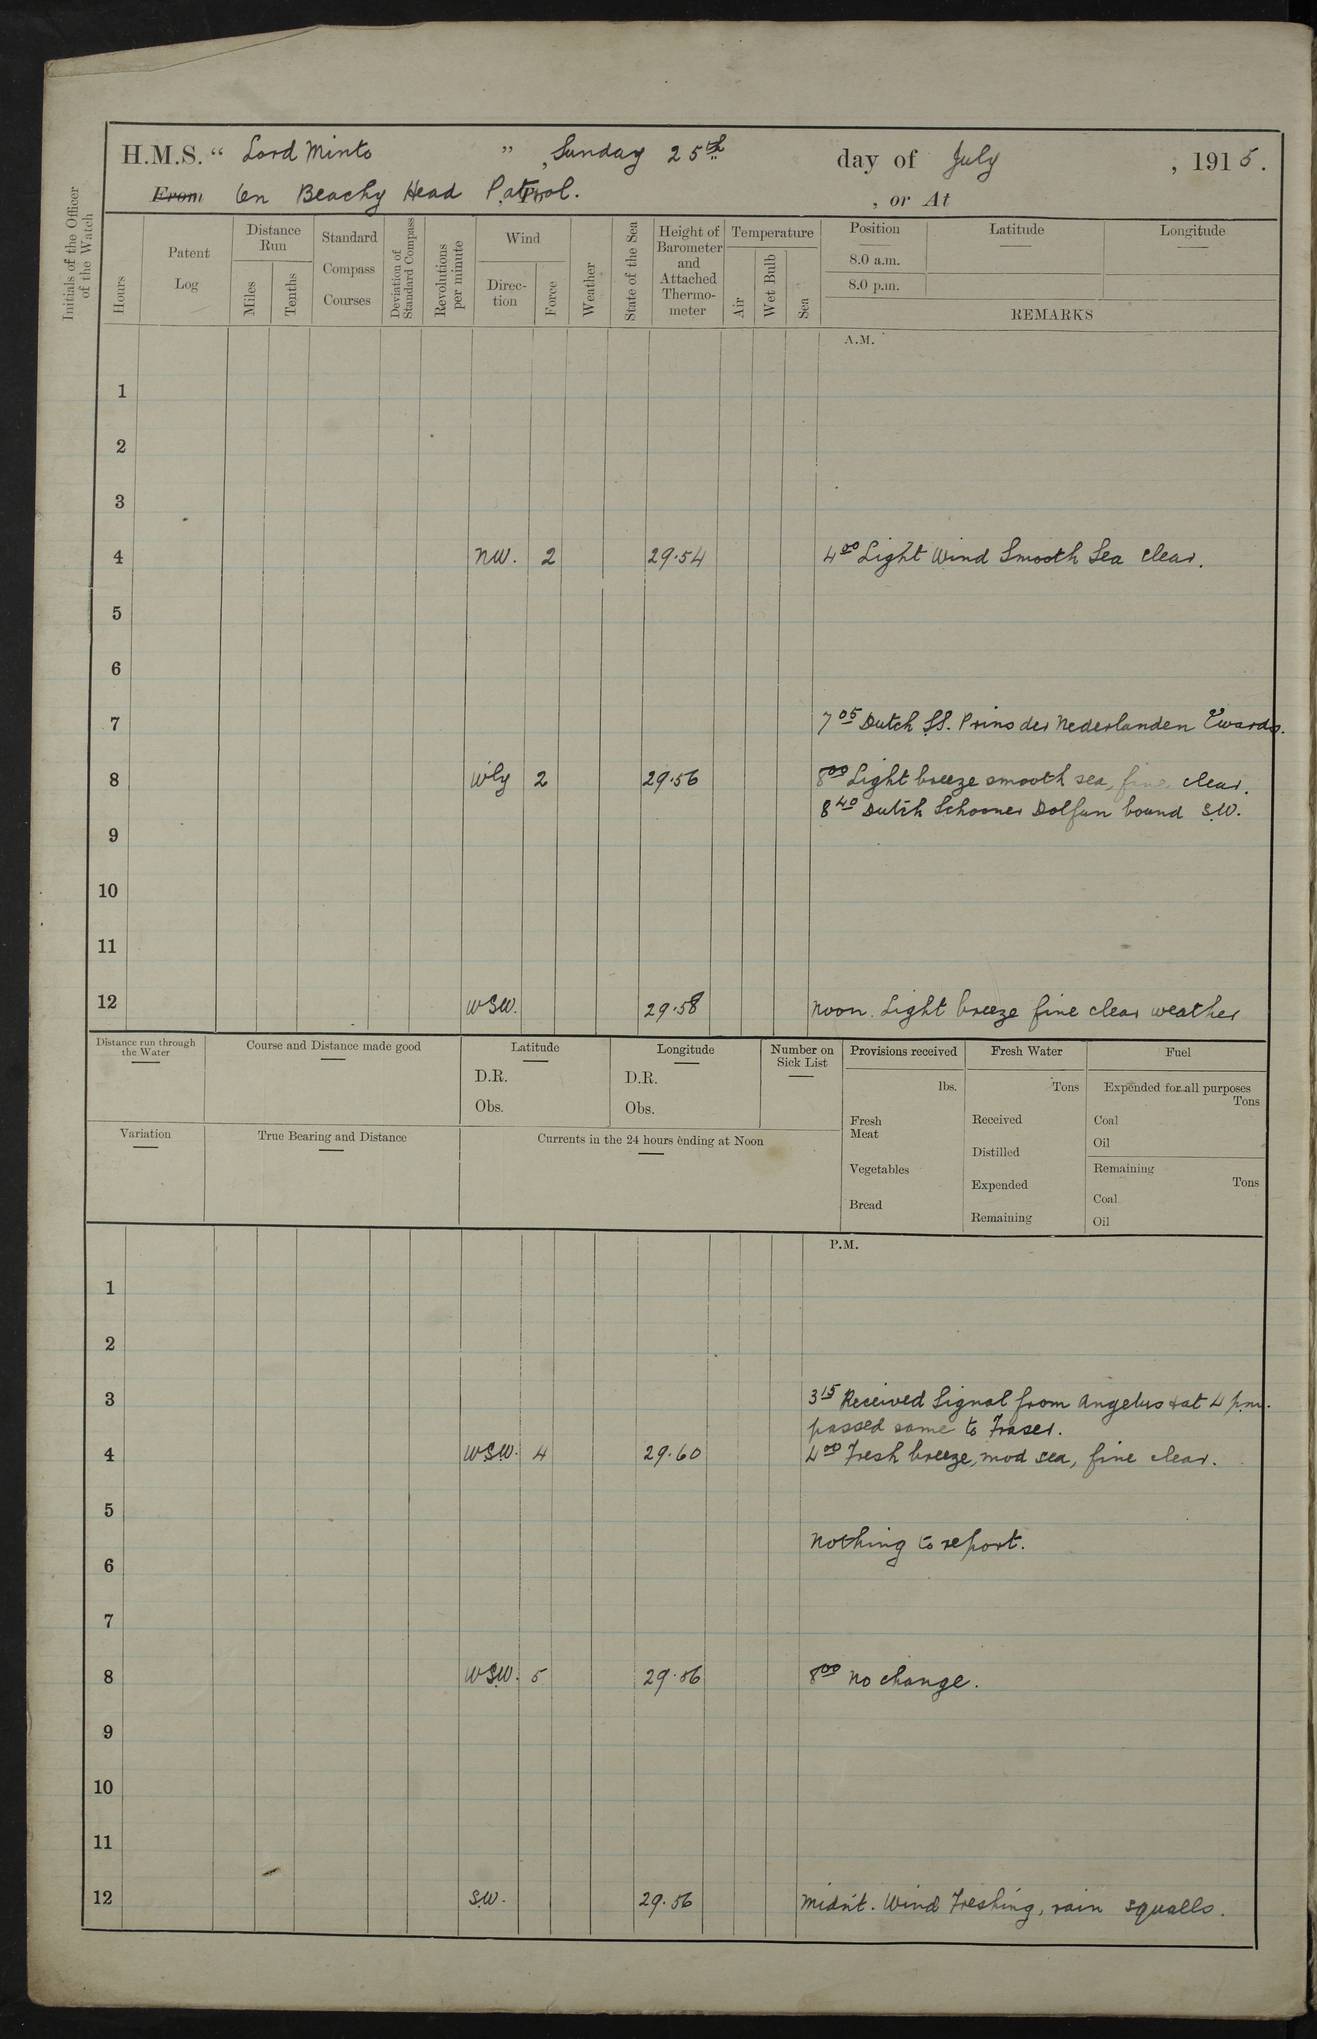 H.M.S. " Lord Minto " , Sunday 25th day of July , 1915.
From On Beachy Head Patrol. , or At
Initials of the Officer of the Watch
Hours
Patent Log
Distance Run
Miles
Tenths
Standard Compass Courses
Deviation of Standard Compass
Revolutions per minute
Wind
Direc-tion
Force
Weather
State of the Sea
Height of Barometer and Attached Thermo-meter
Temperature
Air
Wet Bulb
Sea
Position
8.0 a.m.
8.0 p.m.
Latitude
Longitude
REMARKS
A.M.
1
2
3
4 NW. 2 29.54 4 00 Light Wind Smooth Sea clear.
5
6
7 7 05 Dutch SS. Prins der Nederlanden Ewards.
8 Wly 2 29.56 8 00 Light breeze smooth sea, fine, clear.
8 40 Dutch Schooner Dolfun bound S.W.
9
10
11
12 WSW. 29.58 Noon. Light breeze fine clear weather
Distance run through the Water
Course and Distance made good
Latitude
D.R.
Obs.
Longitude
D.R.
Obs.
Number on Sick List
Provisions received
lbs.
Fresh Meat
Vegetables
Bread
Fresh Water
Tons
Received
Distilled
Expended
Remaining
Fuel
Expended for all purposes
Tons
Coal
Oil
Remaining
Tons
Coal
Oil
Variation
True Bearing and Distance
Currents in the 24 hours ending at Noon
P.M.
1
2
3 3 15 Received Signal from Angelus & at 4 p.m.
passed same to Fraser.
4 WSW. 4 29.60 4 00 Fresh breeze, mod sea, fine clear.
5
Nothing to report.
6
7
8 WSW. 5 29.56 8 00 No change.
9
10
11
12 S.W. 29.56 Midn't. Wind Freshing, rain squalls.